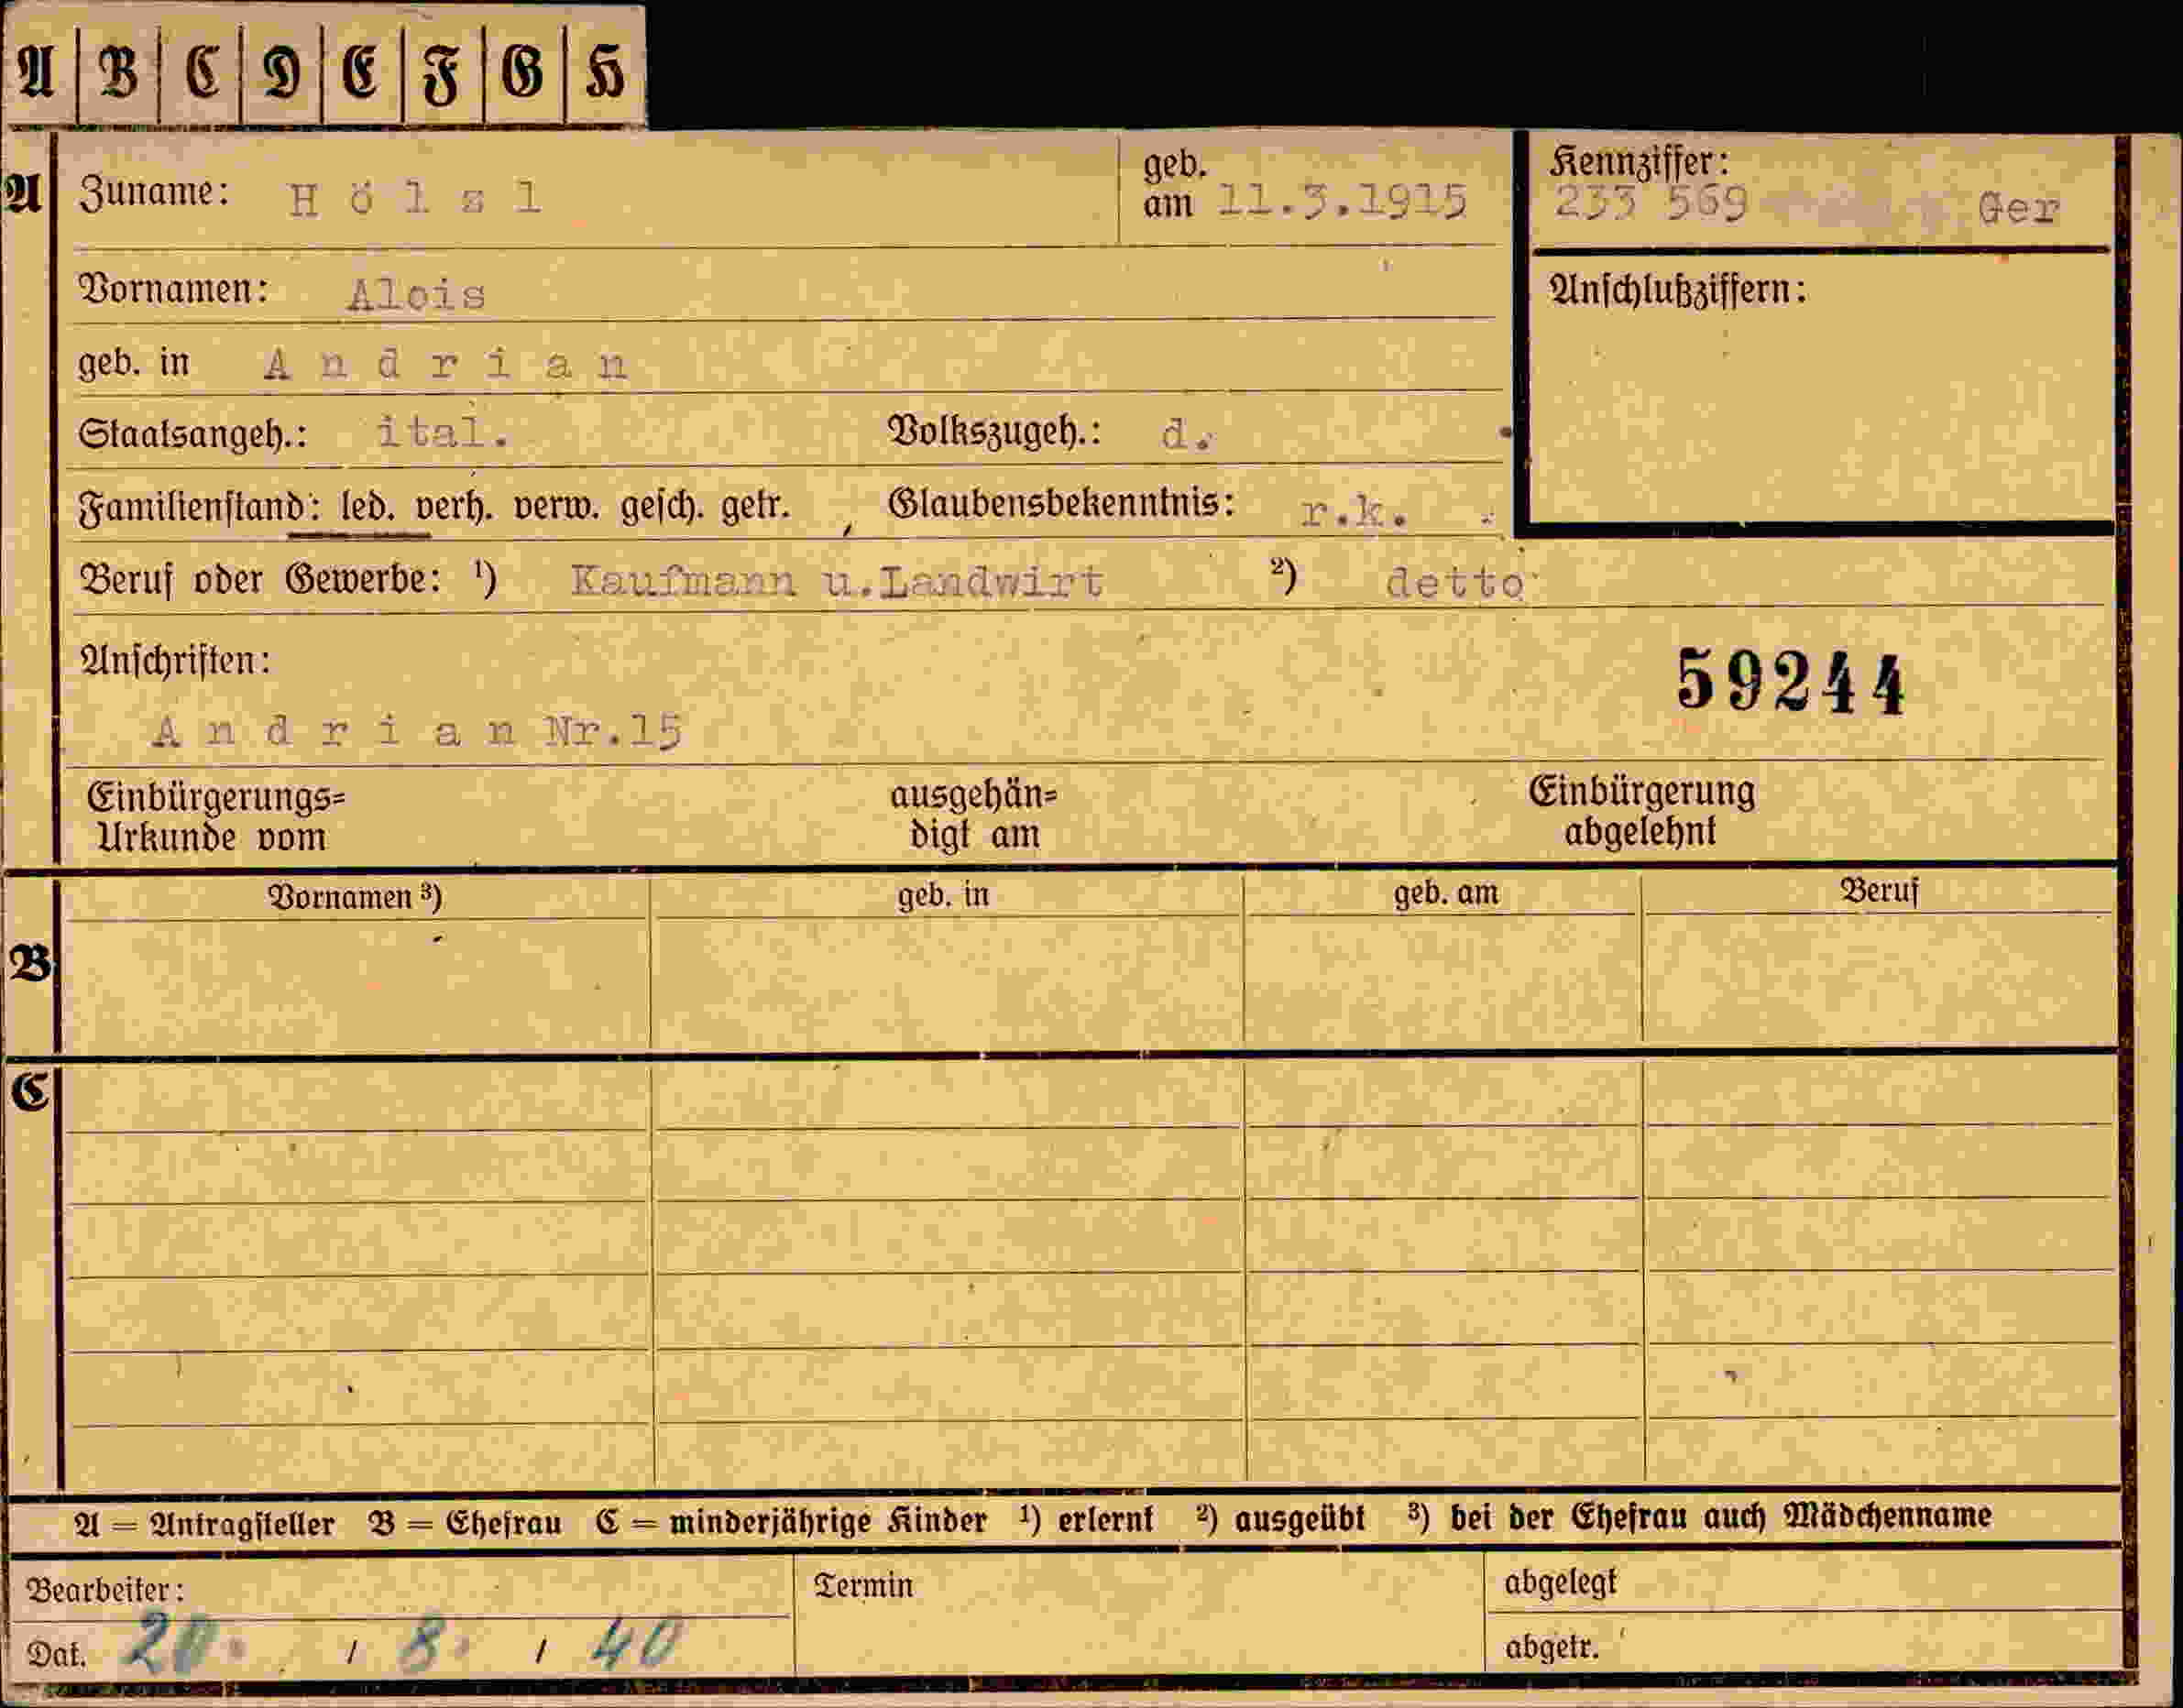 A B C D E F G H
A Zuname: Hölzl geb. am 11.3.1915 Kennziffer: 233 569 Ger
Vornamen: Alois Anschlußziffern:
geb. in Andrian
Staatsangeh.: ital. Volkszugeh.: d.
Familienstand: led. verh. verw. gesch. getr. Glaubensbekenntnis: r.k.
Beruf oder Gewerbe: ¹) Kaufmann u.Landwirt ²) detto
Anschriften: 59244
Andrian Nr.15
Einbürgerungs= ausgehän= Einbürgerung
Urkunde vom digt am abgelehnt
Vornamen ³) geb. in geb. am Beruf
B
C
A = Antragsteller B = Ehefrau C = minderjährige Kinder ¹) erlernt ²) ausgeübt ³) bei der Ehefrau auch Mädchenname
Bearbeiter: Termin abgelegt
Dat. 20. / 8. / 40 abgetr.